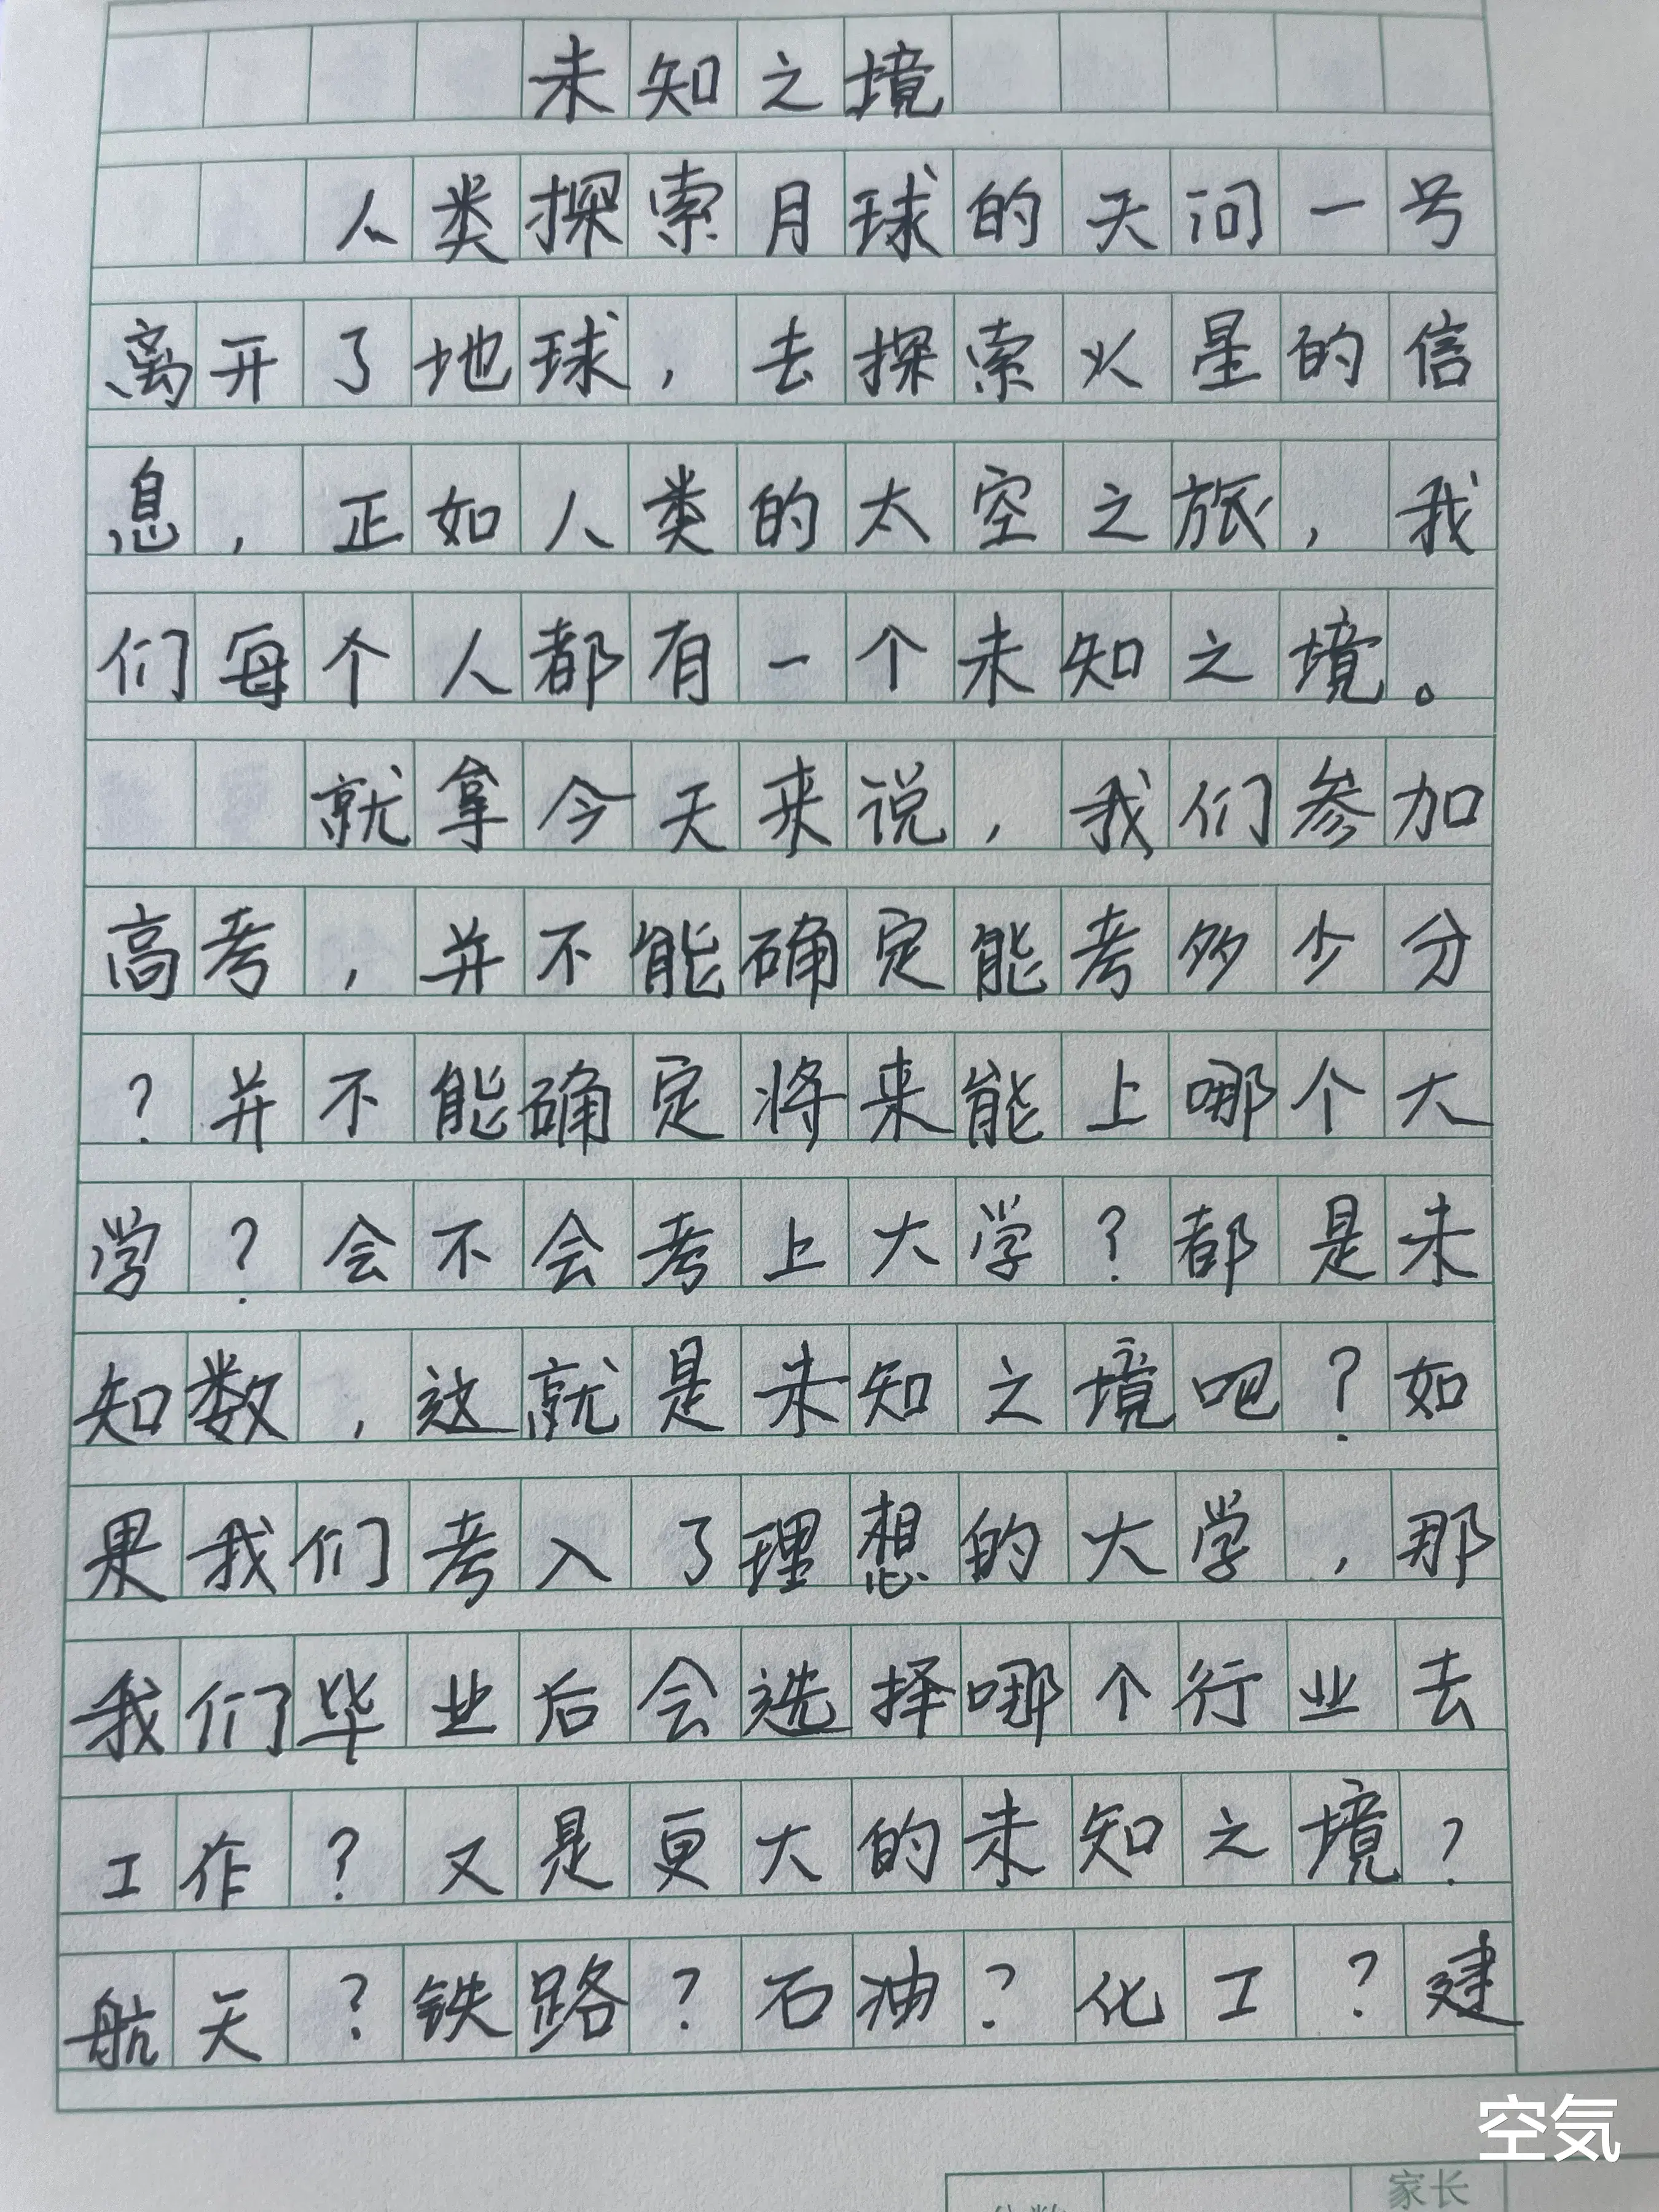 未知之境
人类探索月球的天问一号
离开了地球，去探索火星的信
息，正如人类的太空之旅，我
们每个人都有一个未知之境。
就拿今天来说，我们参加
高考，并不能确定能考多少分
？并不能确定将来能上哪个大
学？会不会考上大学？都是未
知数，这就是未知之境吧？如
果我们考入了理想的大学，那
我们毕业后会选择哪个行业去
工作？又是更大的未知之境？
航天？铁路？石油？化工？建
空気
家长